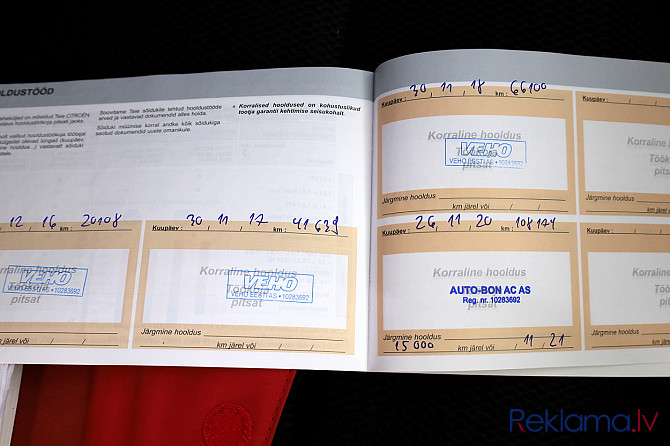 OLDUSTÖÖD
Soovitame Teie sõidukile tehtud hooldustööde
arved ja vastavad dokumendid alles hoida.
Sõiduki müümise korral andke kõik sõidukiga
seotud dokumendid uuele omanikule.
• Korralised hooldused on kohustuslikud
tootja garantii kehtimise seisukohalt.
12 16 km : 20108
Korraline hooldus
VEHO
VEHO EESTI AS • 10283692
pitsat
km järel või / /
Kuupäev : 30 11 17 km : 41639
Korraline hooldus
VEHO
VEHO EESTI AS • 10283692
pitsat
Järgmine hooldus
km järel või / /
Kuupäev : 30, 11, 18 km : 66100
Korraline hooldus
VEHO
VEHO EESTI AS • 10283692
pitsat
Järgmine hooldus
km järel või / /
Kuupäev :
Korraline
Töökoja
Järgmine hooldus
km
Kuupäev : 26, 11, 20 km : 108174
Korraline hooldus
AUTO-BON AC AS
Reg. nr. 10283692
pitsat
Järgmine hooldus
15 000 km järel või , 11, 21
Kuupäev :
Korraline
pitsat
Järgmine hooldus
Reklama.lv